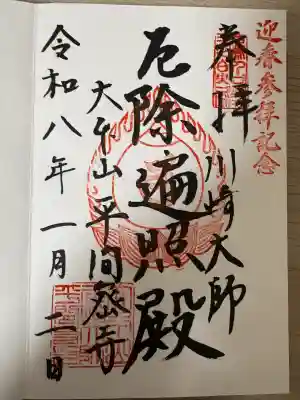 迎春参拝記念
奉拝
川崎大師
厄除遍照殿
大本山 平間寺
令和八年一月二日